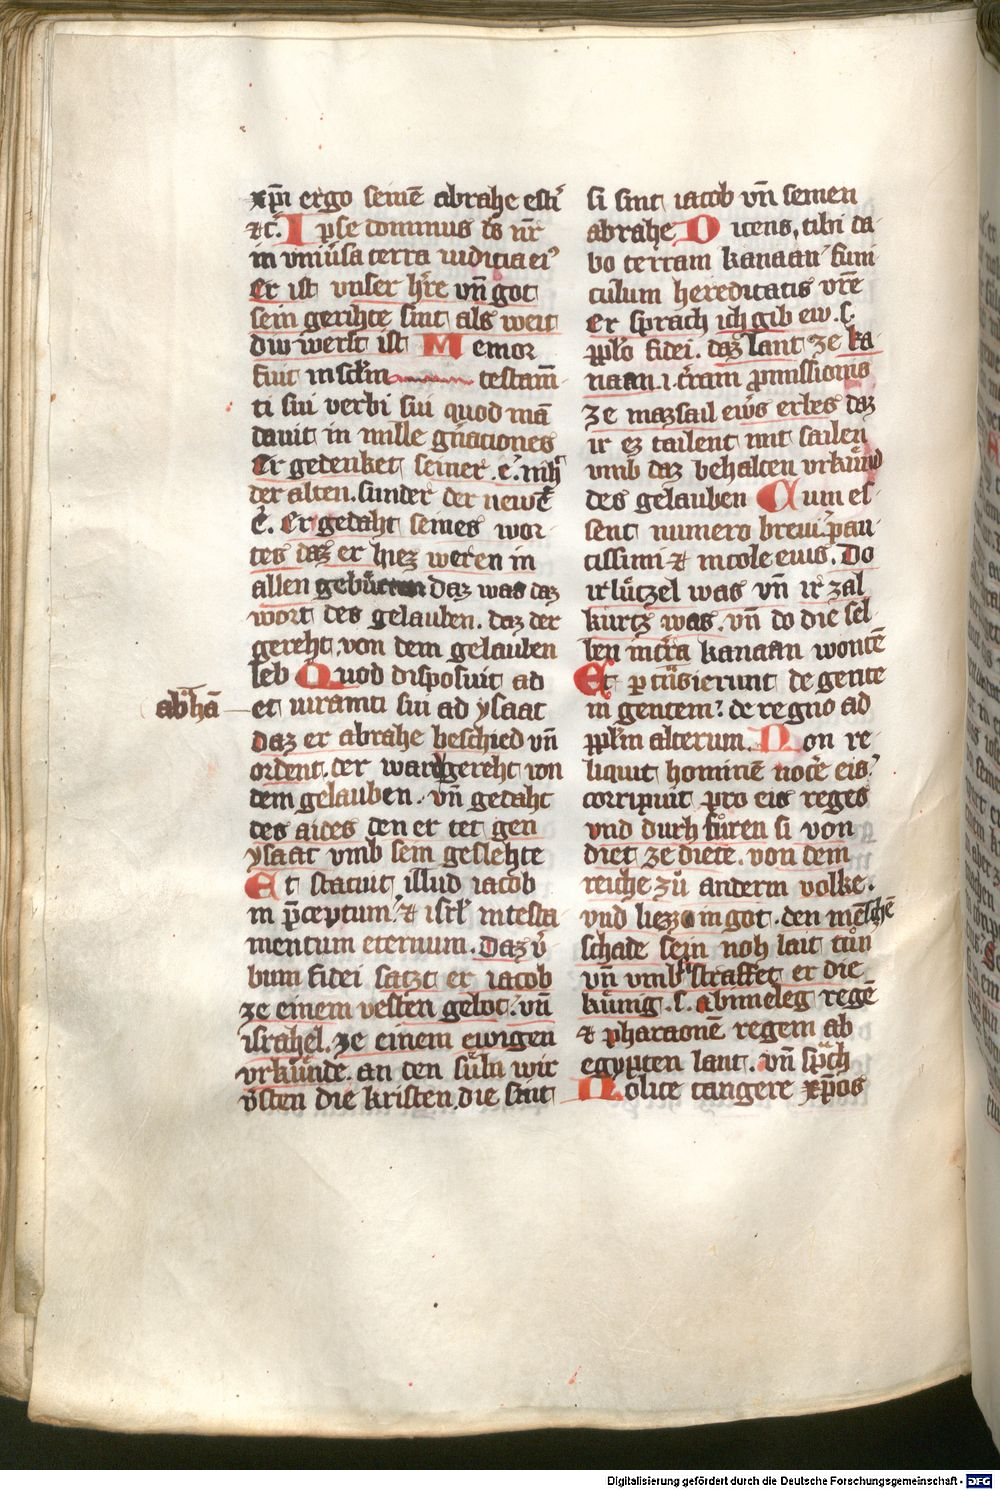 xpm̄ ergo semē abrahe estꝭ
⁊c̄. Ipse dominus ds̄ nr̄
in vniu̾sa terra iudicia ei⁹
Er ist vnser hr̄e vn̄ got
sein gerihte sint als weit
diu werlt ist Memor
fuit in sclm̄ testam̄
ti sui verbi sui quod mā
dauit in mille gn̄ationes
Er gedenket seiner .e. niht
der alten. sunder der newē
ē. Er gedaht seines wor
tes daz er hiez weren in
allen daz was daz
wort des gelauben. daz der
gereht. von dem gelauben
leb Quod disposuit ad
abͣhā
et iuramti sui ad ysaac
daz er abrahe beschied vn̄
ordent. der ward gereht von
dem gelauben. vn̄ gedaht
des aides den er tet gen
ysaac vmb sein geslehte
Et statuit illud iacob
in p̄ceptum. ⁊ isrl̄ in testa
mentum eternum. Daz v̾
bum fidei satzt er iacob
ze einem vesten gebot. vn̄
israhel. ze einem ewigen
vrkuͤnde. an den suͤln wir
v̾sten die kristen. die sint
si sint iacob vn̄ semen
abrahe Dicens, tibi da
bo terram kanaan funi
culum hereditatis vrē
Er sprach ich gib ew .s.
pplo fidei. daz lant ze ka
naan .i. tr̄am ꝓmissionis
ze mazsail ews erbes daz
ir ez tailent mit sailen
vmb daz behalten vrkuͤnd
des gelauben Cum es
sent numero breui. pau
cissimi ⁊ incole eius. Do
ir luͤtzel was vn̄ ir zal
kurtz was. vn̄ do die sel
ben in tr̄a kanaan wontē
Et p tͣnsierunt de gente
in gentem. de regno ad
pplm alterum. Non re
liquit hominē nocēe eis.
corripuit pro eis reges
vnd durh fuͤren si von
diet ze diete. von dem
reiche zuͦ anderm volke.
vnd liezz in got. den mēschē
schade sein noh lait tuͦn
vn̄ vmb si straffet er die
kuͤnig .s. abimeleg regē
⁊ pharaonē regem ab
egypten lant. vn̄ spͣch
Nolite tangere xp̄os
Digitalisierung gefördert durch die Deutsche Forschungsgemeinschaft - DFG